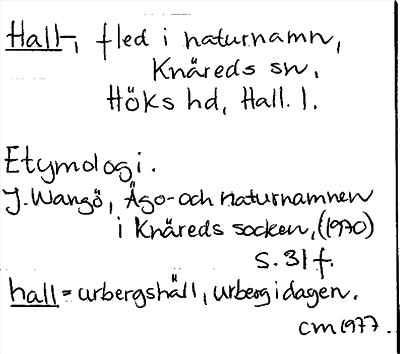 Hall-, fled i naturnamn,
Knäreds sn,
Höks hd, Hall. l.
Etymologi.
J. Wangö, Ägo- och naturnamnen
i Knäreds socken, (1970)
s. 31 f.
hall = urbergshäll, urberg i dagen.
CM 1977.